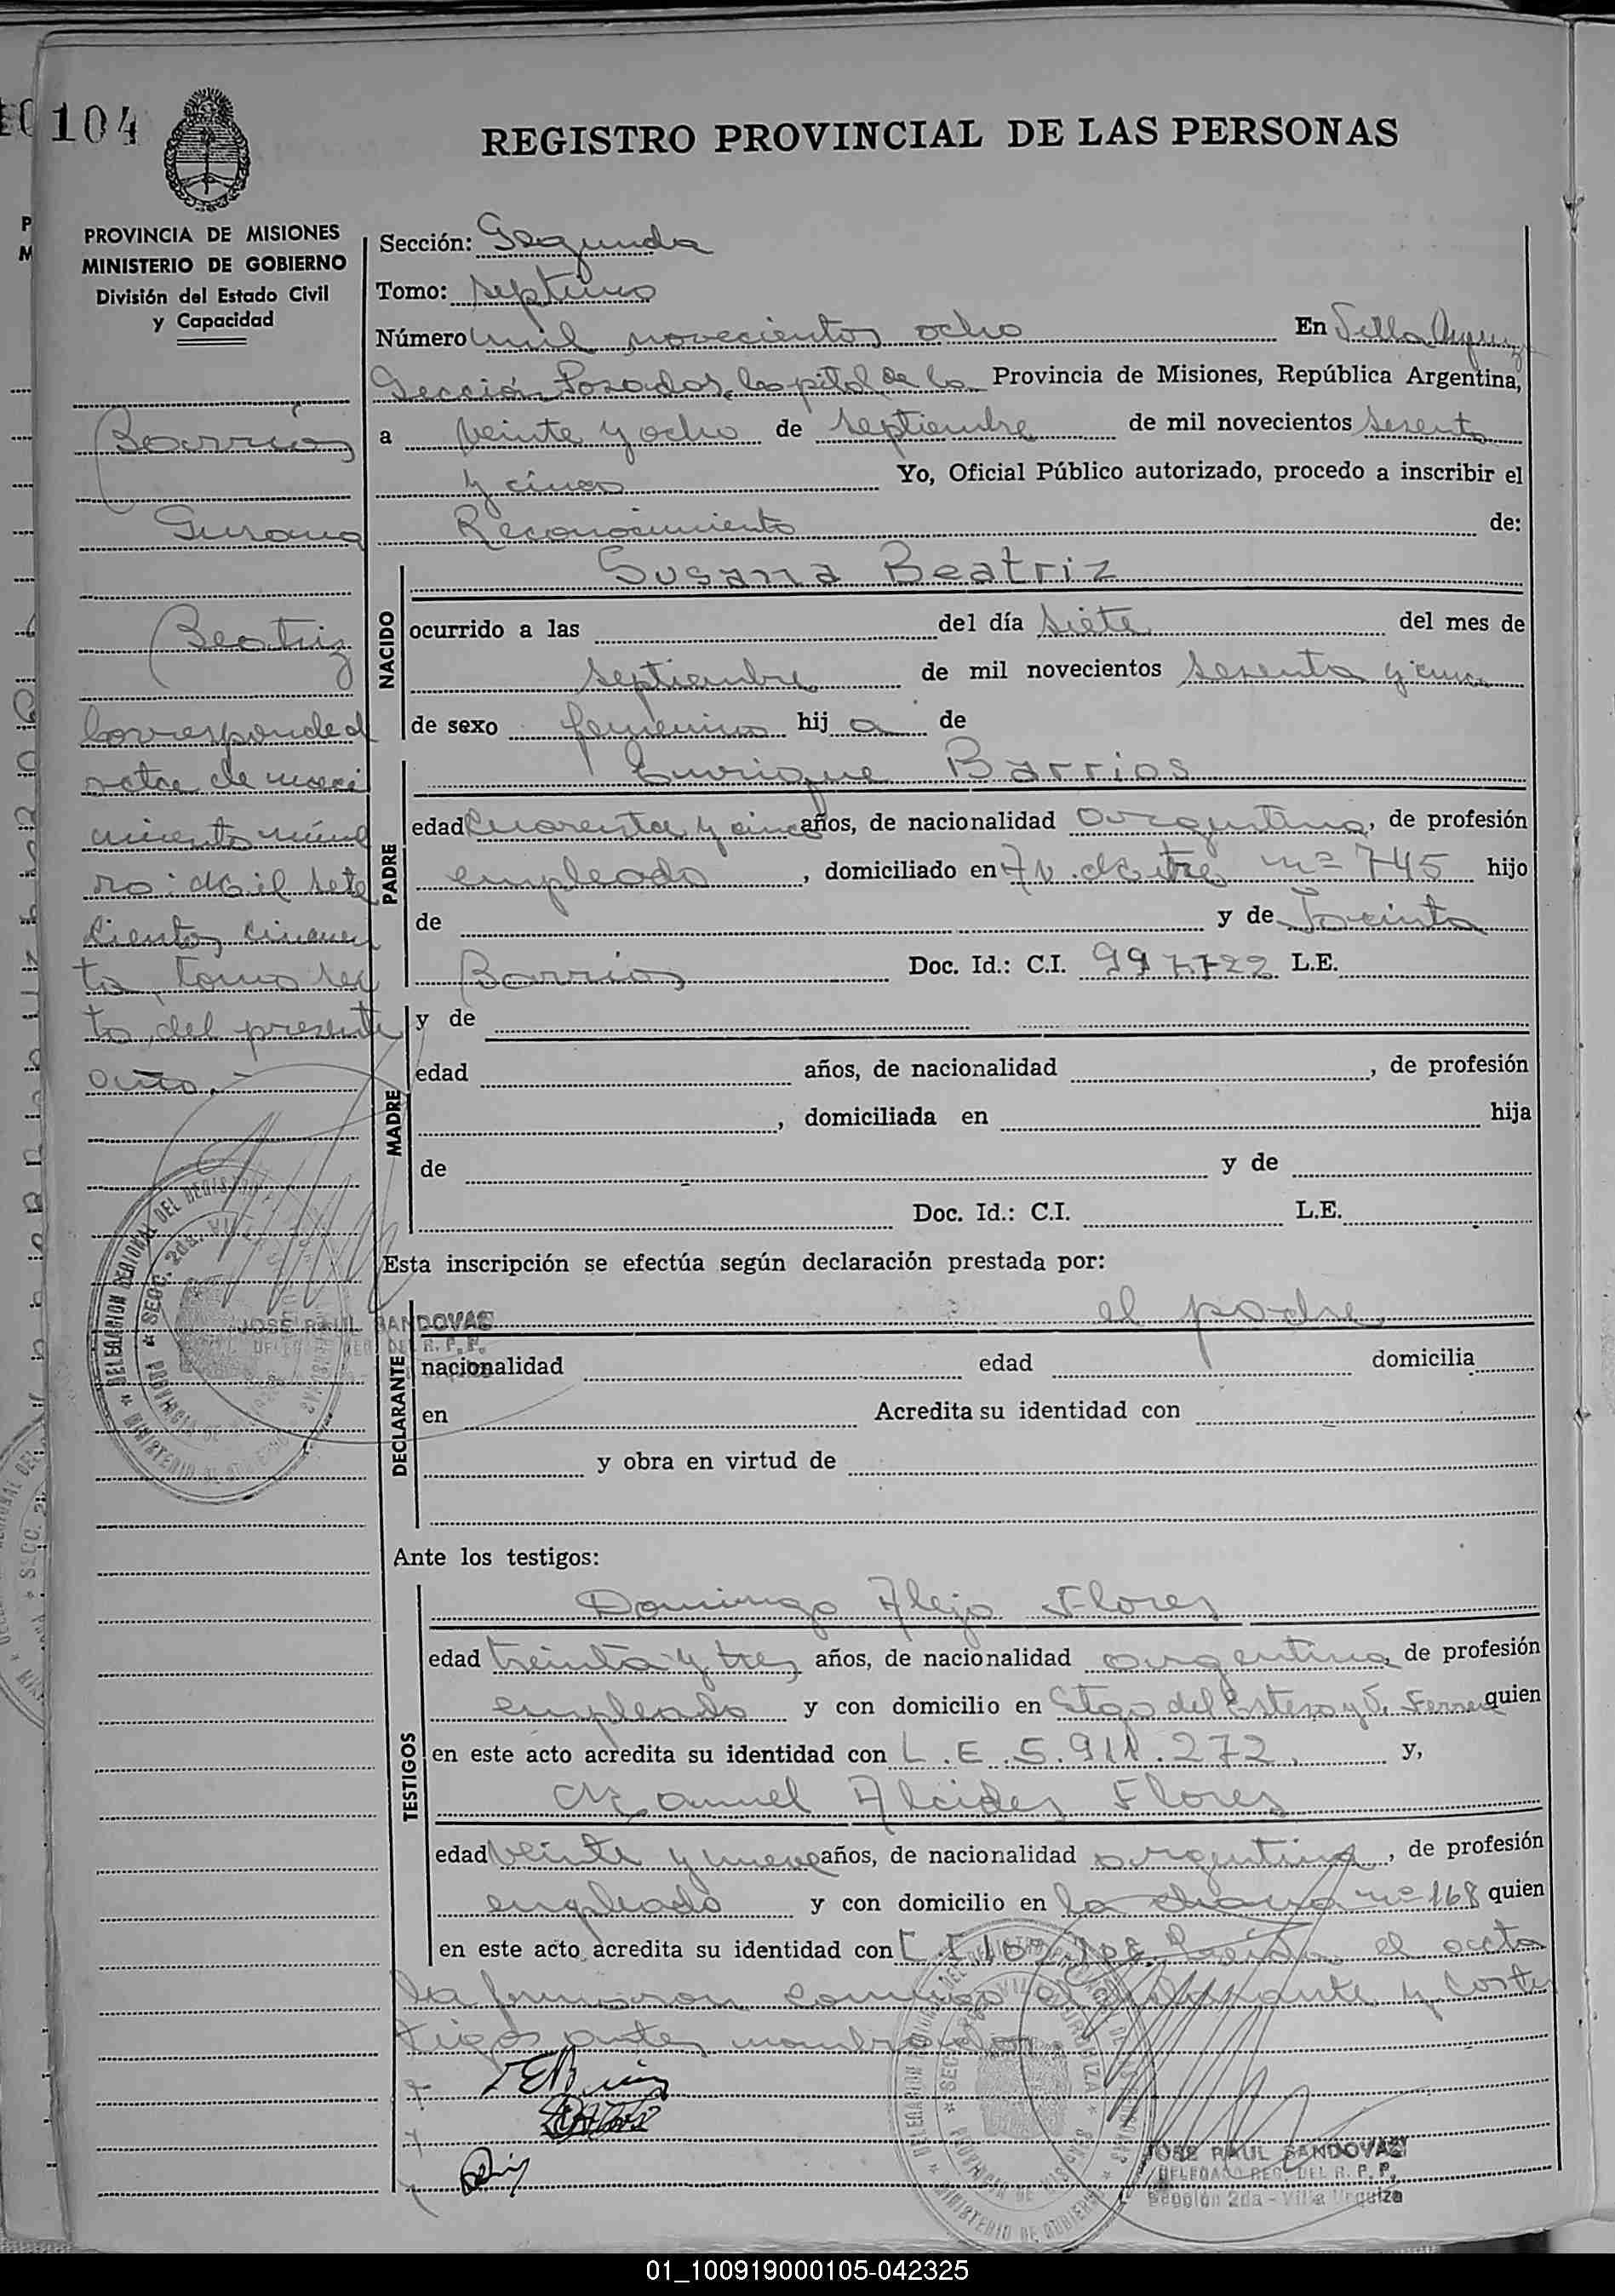 104
REGISTRO PROVINCIAL DE LAS PERSONAS
PROVINCIA DE MISIONES
MINISTERIO DE GOBIERNO
División del Estado Civil
y Capacidad
Barrios
Susana
Beatriz
Corresponde al
acta de naci
miento núme
ro: Mil sete
cientos cincuen
ta, Tomo sex
to, del presente
año.-
Sección: Segunda
Tomo: septimo
Número mil novecientos ocho En Villa Urquiza
Sección Posadas, Capital de la Provincia de Misiones, República Argentina,
a veinte y ocho de septiembre de mil novecientos sesenta
y cinco Yo, Oficial Público autorizado, procedo a inscribir el
Reconocimiento de:
NACIDO
Susana Beatriz
ocurrido a las del día siete del mes de
septiembre de mil novecientos sesenta y cinco
de sexo femenino hij a de
PADRE
Enrique Barrios
edad Cuarenta y cinco años, de nacionalidad argentina, de profesión
empleado, domiciliado en Av. Mitre nº 745 hijo
de y de Jacinta
Barrios Doc. Id.: C.I. 997.722 L.E.
MADRE
y de
edad años, de nacionalidad , de profesión
, domiciliada en hija
de y de
Doc. Id.: C.I. L.E.
Esta inscripción se efectúa según declaración prestada por:
DECLARANTE
el padre
nacionalidad edad domicilia
en Acredita su identidad con
y obra en virtud de
JOSE RAUL SANDOVAL
Ante los testigos:
TESTIGOS
Domingo Alejo Flores
edad treinta y tres años, de nacionalidad argentina, de profesión
empleado y con domicilio en Stgo del Estero y quien
en este acto acredita su identidad con L.E. 5.911.272, y,
Manuel Alcides Flores
edad veinte y nueve años, de nacionalidad argentina, de profesión
empleado y con domicilio en La nº 168 quien
en este acto acredita su identidad con Leida el acta
la firmaron conmigo el y los tes
tigos antes nombrados
JOSE RAUL SANDOVAL
DELEGADO REG. DEL R. P. P.
Sección 2da - Villa Urquiza
01_100919000105-042325